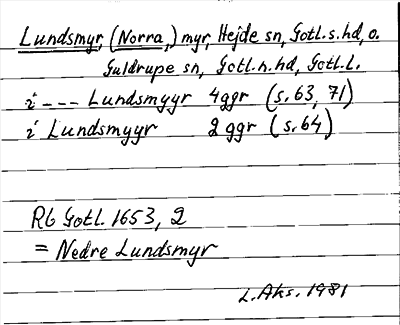 Lundsmyr (Norra,) myr, Hejde sn, Gotl.s.hd, o.
Guldrupe sn, Gotl.n.hd, Gotl.l.
i --- Lundsmyyr 4ggr (s.63, 71)
i Lundsmyyr 2ggr (s.64)
Rb Gotl. 1653, 2
= Nedre Lundsmyr
L.Aks. 1981